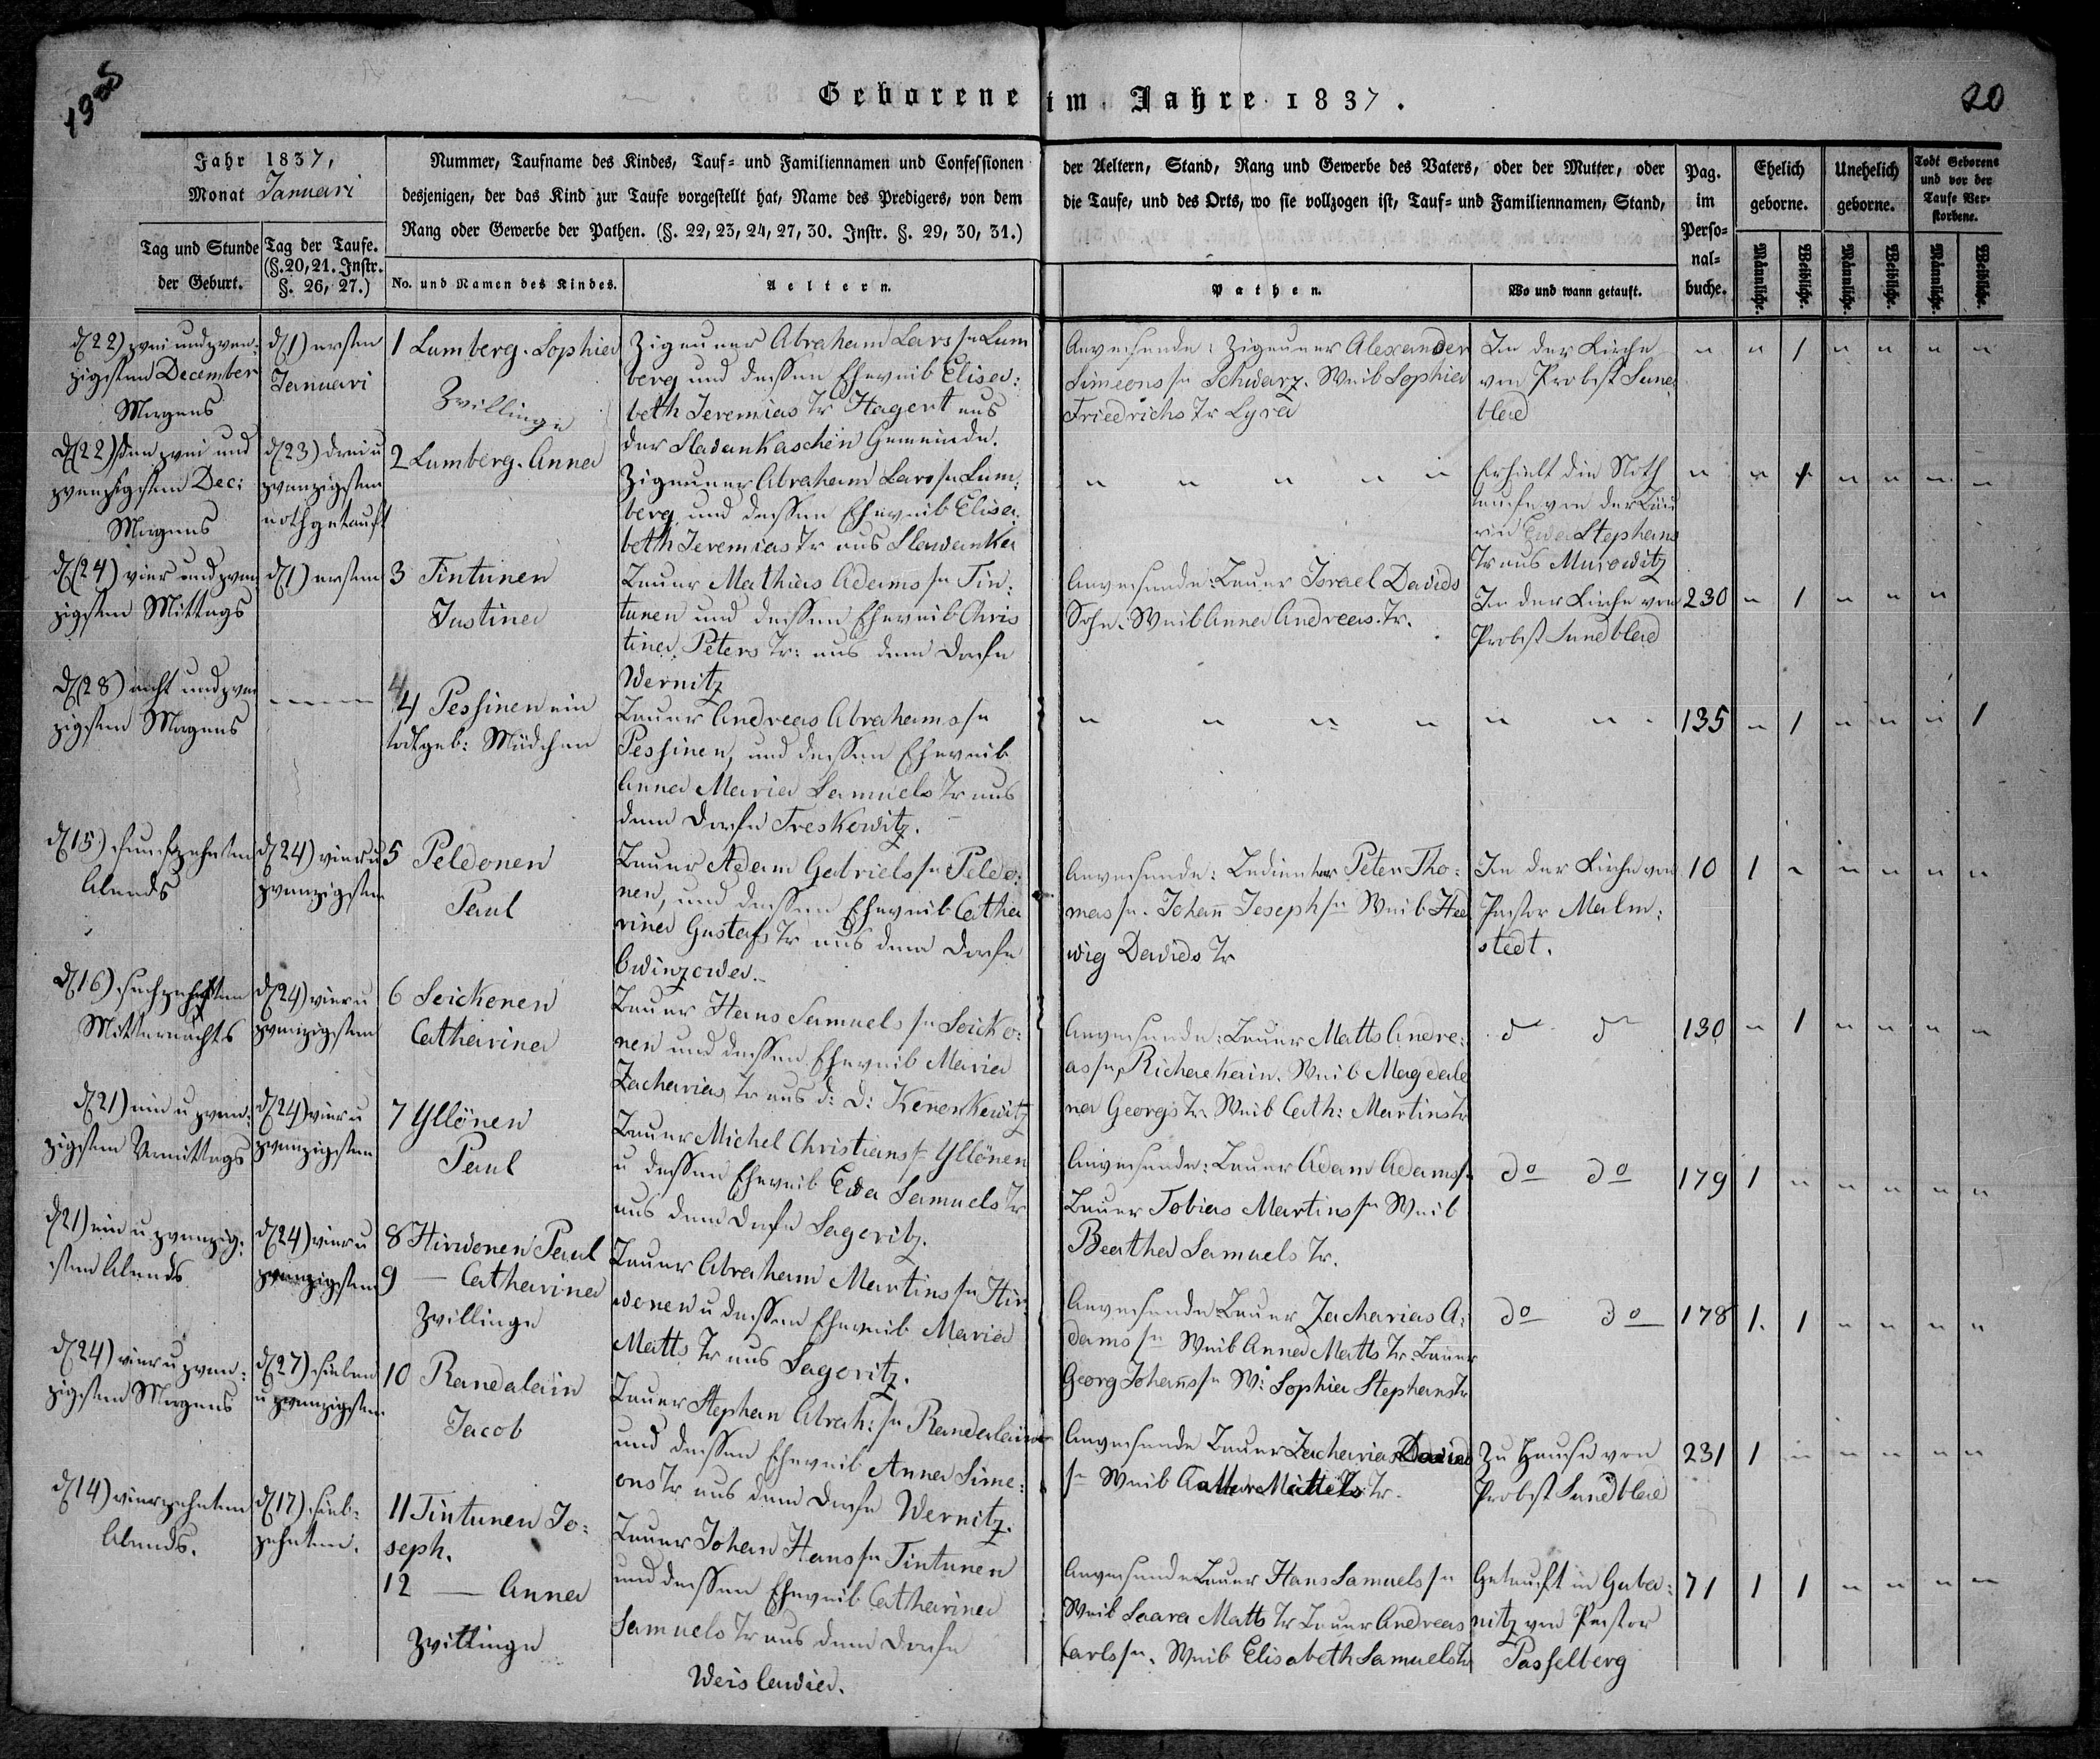 19
20
Geborene im Jahre 1837.
Jahr 1837,
Monat Januari
Tag und Stunde
der Geburt.
Tag der Taufe.
(§.20,21. Instr.
§. 26, 27.)
Nummer, Taufname des Kindes, Tauf- und Familiennamen und Confessionen
desjenigen, der das Kind zur Taufe vorgestellt hat, Name des Predigers, von dem
Rang oder Gewerbe der Pathen. (§. 22, 23, 24, 27, 30. Instr. §. 29, 30, 31.)
No. und Namen des Kindes.
Aeltern.
der Aeltern, Stand, Rang und Gewerbe des Vaters, oder der Mutter, oder
die Taufe, und des Orts, wo sie vollzogen ist, Tauf- und Familiennamen, Stand,
Pathen.
Wo und wann getauft.
Pag.
im
Perso-
nal-
buche.
Ehelich
geborne.
Unehelich
geborne.
Todt Geborene
und vor der
Taufe Ver-
storbene.
Männliche.
Weibliche.
Männliche.
Weibliche.
Männliche.
Weibliche.
d(22) zwei und zwan:
zigsten December
Morgens
d(1) ersten
Januari
1 Lumberg. Sophia
Zwillinge
Zigeuner Abraham Lars sn Lum
berg und dessen Eheweib Elisa:
beth Jeremias Tr Hagert aus
der Slawankaschen Gemeinde.
Anwesende: Zigeuner Alexander
Simeons sn Schwarz. Weib Sophia
Friedrichs Tr Lyra
In der Kirche
von Probst Sund
blad
" " 1 " " " "
d(22) den zwei und
zwanzigsten Dec:
Morgens
d(23) drei u
zwanzigsten
nothgetauft
2 Lumberg. Anna
Zigeuner Abraham Lars sn Lum:
berg und dessen Eheweib Elisa:
beth Jeremias Tr aus Slawanka
" " " " "
Erhielt die Noth
taufe von der Bäu
rin Ewa Stephans
Tr aus Murowitz
" " 1 " " " "
d(24) vier und zwan
zigsten Mittags
d(1) ersten
3 Tintunen
Justina
Bauer Mathias Adams sn Tin:
tunen und dessen Eheweib Chris
tina Peters Tr: aus dem Dorfe
Wernitz
Anwesende: Bauer Israel Davids
Sohn. Weib Anna Andreas. Tr.
In der Kirche von
Probst Sundblad
230 " 1 " " "
d(28) acht und zwan
zigsten Morgens
4 Pessinen ein
todtgeb: Mädchen
Bauer Andreas Abrahams sn
Pessinen, und dessen Eheweib
Anna Maria Samuels Tr aus
dem Dorfe Treskowitz.
" " " " " "
135 " 1 " " " 1
d(15) funfzehnten
Abends
d(24) vier u
zwanzigsten
5 Peldonen
Paul
Bauer Adam Gabriels sn Peldo:
nen, und dessen Eheweib Catha
rina Gustafs Tr aus dem Dorfe
Anwesende: Bedienter Peter Tho:
mas sn. Johann Joseph sn Weib Hed
wig Davids Tr
In der Kirche von
Pastor Malm:
stedt.
10 1 " " " " "
d(16) sechzehnten
Mitternachts
d(24) vier u
zwanzigsten
6 Soickonen
Catharina
Bauer Hans Samuels sn Soicko:
nen und dessen Eheweib Maria
Zacharias Tr aus d: D: Korenkowitz
Anwesende: Bauer Matts Andre:
as sn Richackain. Weib Magdale
na Georgs Tr. Weib Cath: Martins Tr
do do
130 " 1 " " " "
d(21) ein u zwan:
zigsten Vormittags
d(24) vier u
zwanzigsten
7 Yllönen
Paul
Bauer Michel Christians sn Yllönen
u dessen Eheweib Ewa Samuels Tr
aus dem Dorfe Sagoritz.
Anwesende: Bauer Adam Adams sn
Bauer Tobias Martins sn Weib
Beatha Samuels Tr.
do do
179 1 " " " " "
d(21) ein u zwanzig:
sten Abends
d(24) vier u
zwanzigsten
8 Hirwonen Paul
9 — Catharina
Zwillinge
Bauer Abraham Martins sn Hir
wonen u dessen Eheweib Maria
Matts Tr aus Sagoritz.
Anwesende Bauer Zacharias A:
dams sn Weib Anna Matts Tr. Bauer
Georg Johanns sn W: Sophia Stephans Tr
do do
178 1. 1 " " " "
d(24) vier u zwan:
zigsten Morgens
d(27) sieben
u zwanzigsten
10 Randalain
Jacob
Bauer Stephan Abrah: sn Randalain
und dessen Eheweib Anna Sime:
ons Tr aus dem Dorfe Wernitz.
Anwesende Bauer Zacharias Davids
sn Weib Tr.
Zu Hause von
Probst Sundblad
231 1 " " " " "
d(14) vierzehnten
Abends.
d(17) sieb:
zehnten.
11 Tintunen Jo:
seph.
12 — Anna
Zwillinge
Bauer Johan Hans sn Tintunen
und dessen Eheweib Catharina
Samuels Tr aus dem Dorfe
Weislawia.
Anwesende Bauer Hans Samuels sn
Weib Saara Matts Tr Bauer Andreas
Carls sn. Weib Elisabeth Samuels Tr
Getauft in Guba:
nitz von Pastor
Passelberg
71 1 1 " " " "